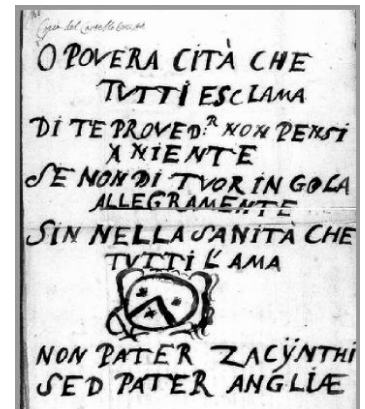 Copia del Cartello
O POVERA CITÀ CHE
TVTTI ESCLAMA
DI TE PROVED.R NON PENSI
A NIENTE
SE NON DI TVOR IN GOLA
ALLEGRAMENTE
SIN NELLA SANITÀ CHE
TVTTI L'AMA
NON PATER ZACŸNTHI
SED PATER ANGLIÆ